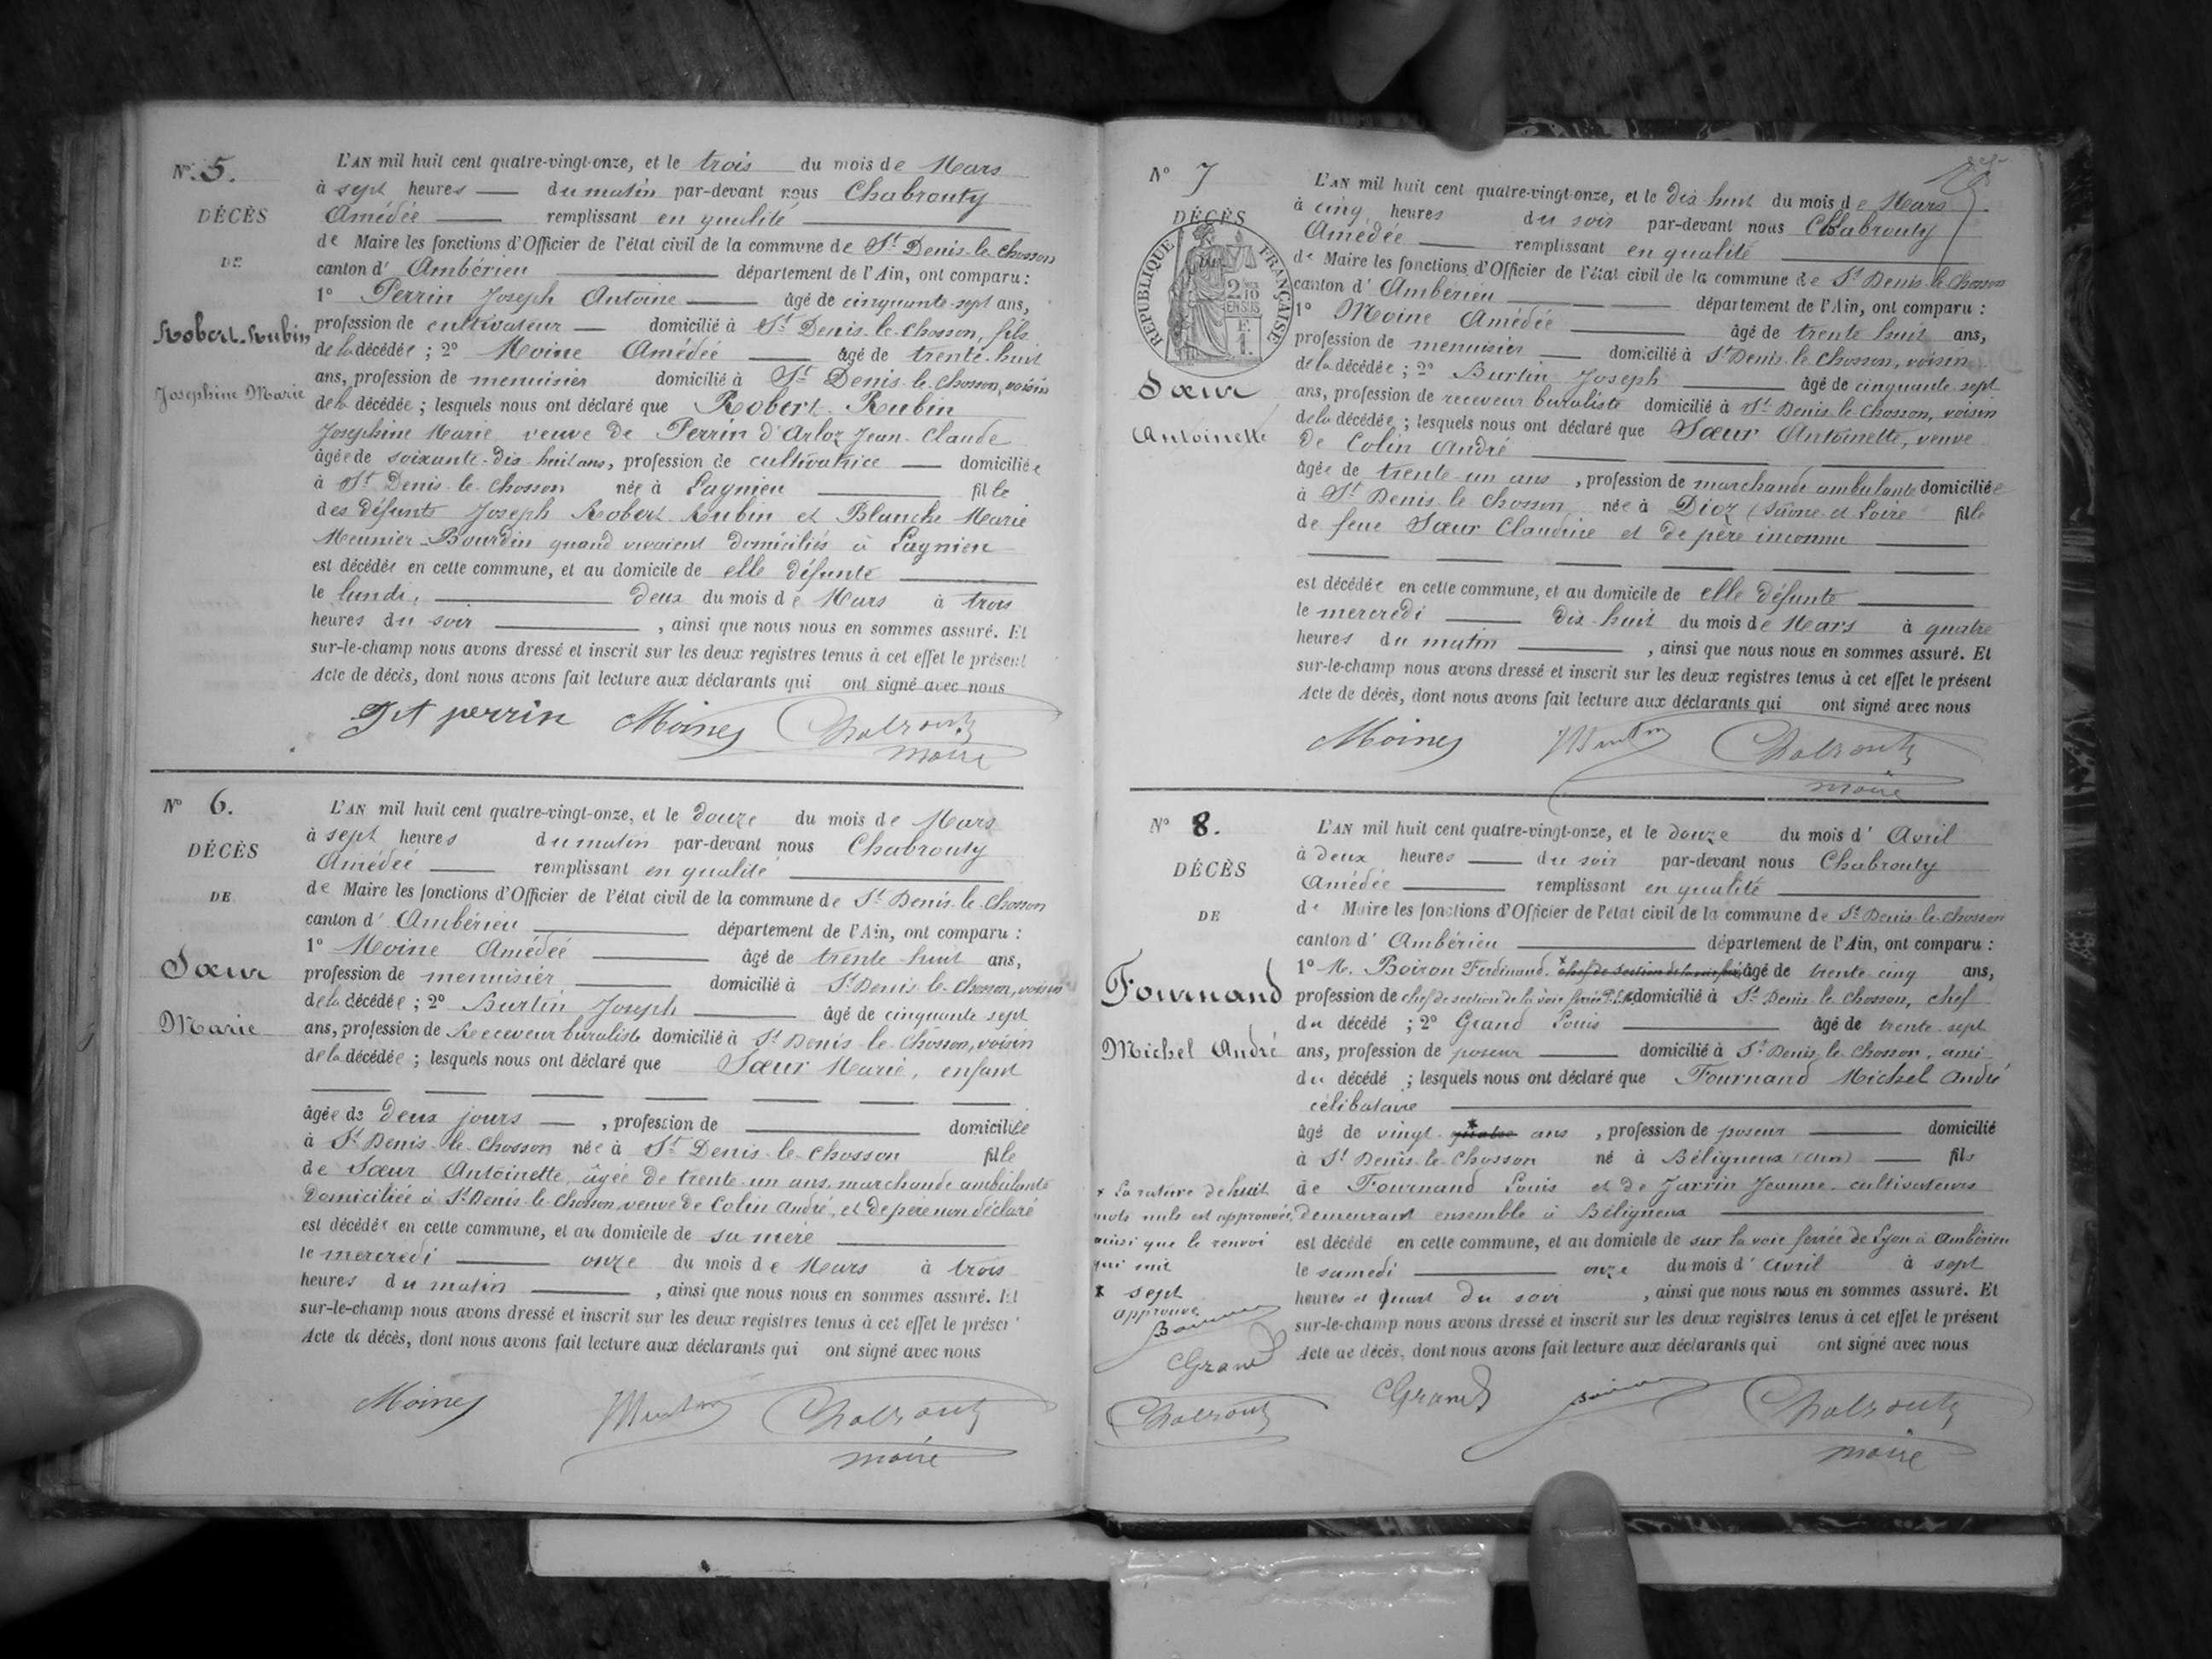 N° 5.
DÉCÈS
DE
Robert-Rubin
Josephine Marie
L'AN mil huit cent quatre-vingt-onze, et le trois du mois de Mars
à sept heures du matin par-devant nous Chabrouty
Amédée remplissant en qualité
de Maire les fonctions d'Officier de l'état civil de la commune de St Denis-le-Chosson
canton d'Ambérieu département de l'Ain, ont comparu :
1° Perrin Joseph Antoine âgé de cinquante-sept ans,
profession de cultivateur domicilié à St Denis-le-Chosson, fils
de la décédée ; 2° Moine Amédée âgé de trente-huit
ans, profession de menuisier domicilié à St Denis-le-Chosson, voisin
de la décédée ; lesquels nous ont déclaré que Robert-Rubin
Josephine Marie veuve de Perrin d'Arloz Jean-Claude
âgée de soixante-dix-huit ans, profession de cultivatrice domiciliée
à St Denis-le-Chosson née à Lagnieu fille
des défunts Joseph Robert-Rubin et Blanche Marie
Meunier-Bourdin quand vivaient domiciliés à Lagnieu
est décédée en cette commune, et au domicile de elle défunte
le lundi, deux du mois de Mars à trois
heures du soir , ainsi que nous nous en sommes assuré. Et
sur-le-champ nous avons dressé et inscrit sur les deux registres tenus à cet effet le présent
Acte de décès, dont nous avons fait lecture aux déclarants qui ont signé avec nous
perrin Moine Chabrouty
maire
N° 6.
DÉCÈS
DE
Sœur
Marie
L'AN mil huit cent quatre-vingt-onze, et le douze du mois de Mars
à sept heures du matin par-devant nous Chabrouty
Amédée remplissant en qualité
de Maire les fonctions d'Officier de l'état civil de la commune de St Denis-le-Chosson
canton d'Ambérieu département de l'Ain, ont comparu :
1° Moine Amédée âgé de trente huit ans,
profession de menuisier domicilié à St Denis-le-Chosson, voisin
de la décédée ; 2° Burtin Joseph âgé de cinquante sept
ans, profession de Receveur buraliste domicilié à St Denis-le-Chosson, voisin
de la décédée ; lesquels nous ont déclaré que Sœur Marie, enfant
âgée de deux jours , profession de domiciliée
à St Denis-le-Chosson née à St Denis-le-Chosson fille
de Sœur Antoinette, âgée de trente-un ans, marchande ambulante
domiciliée à St Denis-le-Chosson, veuve de Colin André, et de père non déclaré
est décédée en cette commune, et au domicile de sa mère
le mercredi onze du mois de Mars à trois
heures du matin , ainsi que nous nous en sommes assuré. Et
sur-le-champ nous avons dressé et inscrit sur les deux registres tenus à cet effet le présent
Acte de décès, dont nous avons fait lecture aux déclarants qui ont signé avec nous
Moine Burtin Chabrouty
maire
N° 7
DÉCÈS
RÉPUBLIQUE FRANÇAISE
Sœur
Antoinette
L'AN mil huit cent quatre-vingt-onze, et le dix huit du mois de Mars
à cinq heures du soir par-devant nous Chabrouty
Amédée remplissant en qualité
de Maire les fonctions d'Officier de l'état civil de la commune de St Denis-le-Chosson
canton d'Ambérieu département de l'Ain, ont comparu :
1° Moine Amédée âgé de trente huit ans,
profession de menuisier domicilié à St Denis-le-Chosson, voisin
de la décédée ; 2° Burtin Joseph âgé de cinquante-sept
ans, profession de receveur buraliste domicilié à St Denis-le-Chosson, voisin
de la décédée ; lesquels nous ont déclaré que Sœur Antoinette, veuve
de Colin André
âgée de trente-un ans , profession de marchande ambulante domiciliée
à St Denis-le-Chosson née à Dioz (Saône-et-Loire fille
de feue Sœur Claudine et de père inconnu
est décédée en cette commune, et au domicile de elle défunte
le mercredi dix-huit du mois de Mars à quatre
heures du matin , ainsi que nous nous en sommes assuré. Et
sur-le-champ nous avons dressé et inscrit sur les deux registres tenus à cet effet le présent
Acte de décès, dont nous avons fait lecture aux déclarants qui ont signé avec nous
Moine Burtin Chabrouty
maire
N° 8.
DÉCÈS
DE
Fournand
Michel André
L'AN mil huit cent quatre-vingt-onze, et le douze du mois d'Avril
à deux heures du soir par-devant nous Chabrouty
Amédée remplissant en qualité
de Maire les fonctions d'Officier de l'état civil de la commune de St Denis-le-Chosson
canton d'Ambérieu département de l'Ain, ont comparu :
1° M. Boiron Ferdinand, chef de section de la voie âgé de trente-cinq ans,
profession de chef de section de la voie ferrée domicilié à St Denis-le-Chosson, chef
du décédé ; 2° Grand Louis âgé de trente-sept
ans, profession de poseur domicilié à St Denis-le-Chosson, ami
du décédé ; lesquels nous ont déclaré que Fournand Michel André
célibataire
âgé de vingt-quatre ans , profession de poseur domicilié
à St Denis-le-Chosson né à Béligneux (Ain) fils
de Fournand Louis et de Jarrin Jeanne, cultivateurs
demeurant ensemble à Béligneux
est décédé en cette commune, et au domicile de sur la voie ferrée de Lyon à Ambérieu
le samedi onze du mois d'avril à sept
heures et quart du soir , ainsi que nous nous en sommes assuré. Et
sur-le-champ nous avons dressé et inscrit sur les deux registres tenus à cet effet le présent
Acte de décès, dont nous avons fait lecture aux déclarants qui ont signé avec nous
x La rature de huit
mots nuls est approuvée,
ainsi que le renvoi
qui suit
x sept
approuvé
Boiron
Grand
Chabrouty
Grand Boiron Chabrouty
maire